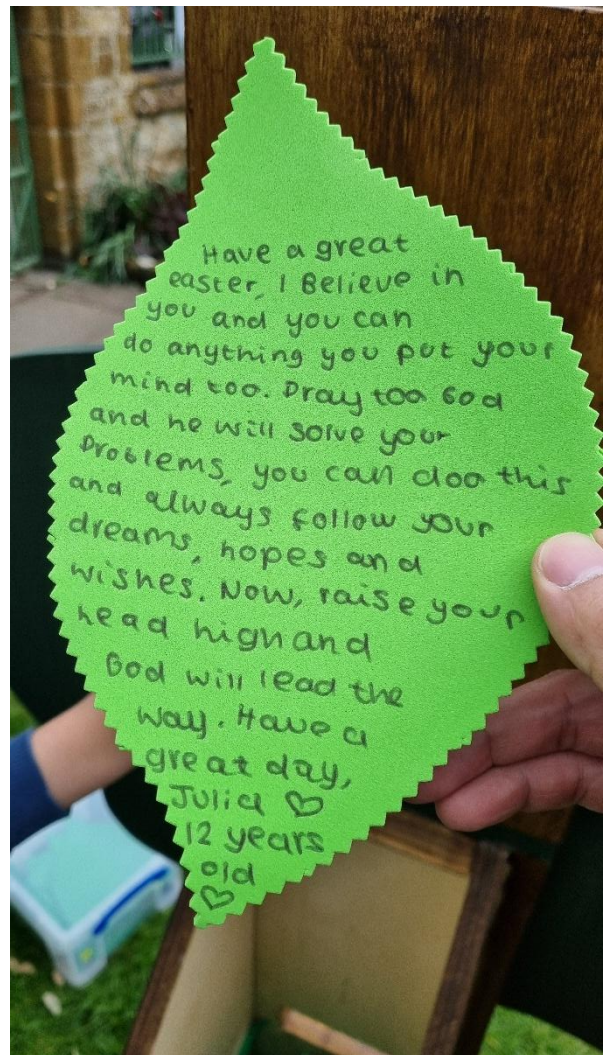 Have a great
easter, I Believe in
you and you can
do anything you put your
mind too. Pray too God
and he will solve your
Problems, you can doo this
and always follow your
dreams, hopes and
wishes. Now, raise your
head high and
God will lead the
way. Have a
great day,
Julia ♡
12 years
old
♡